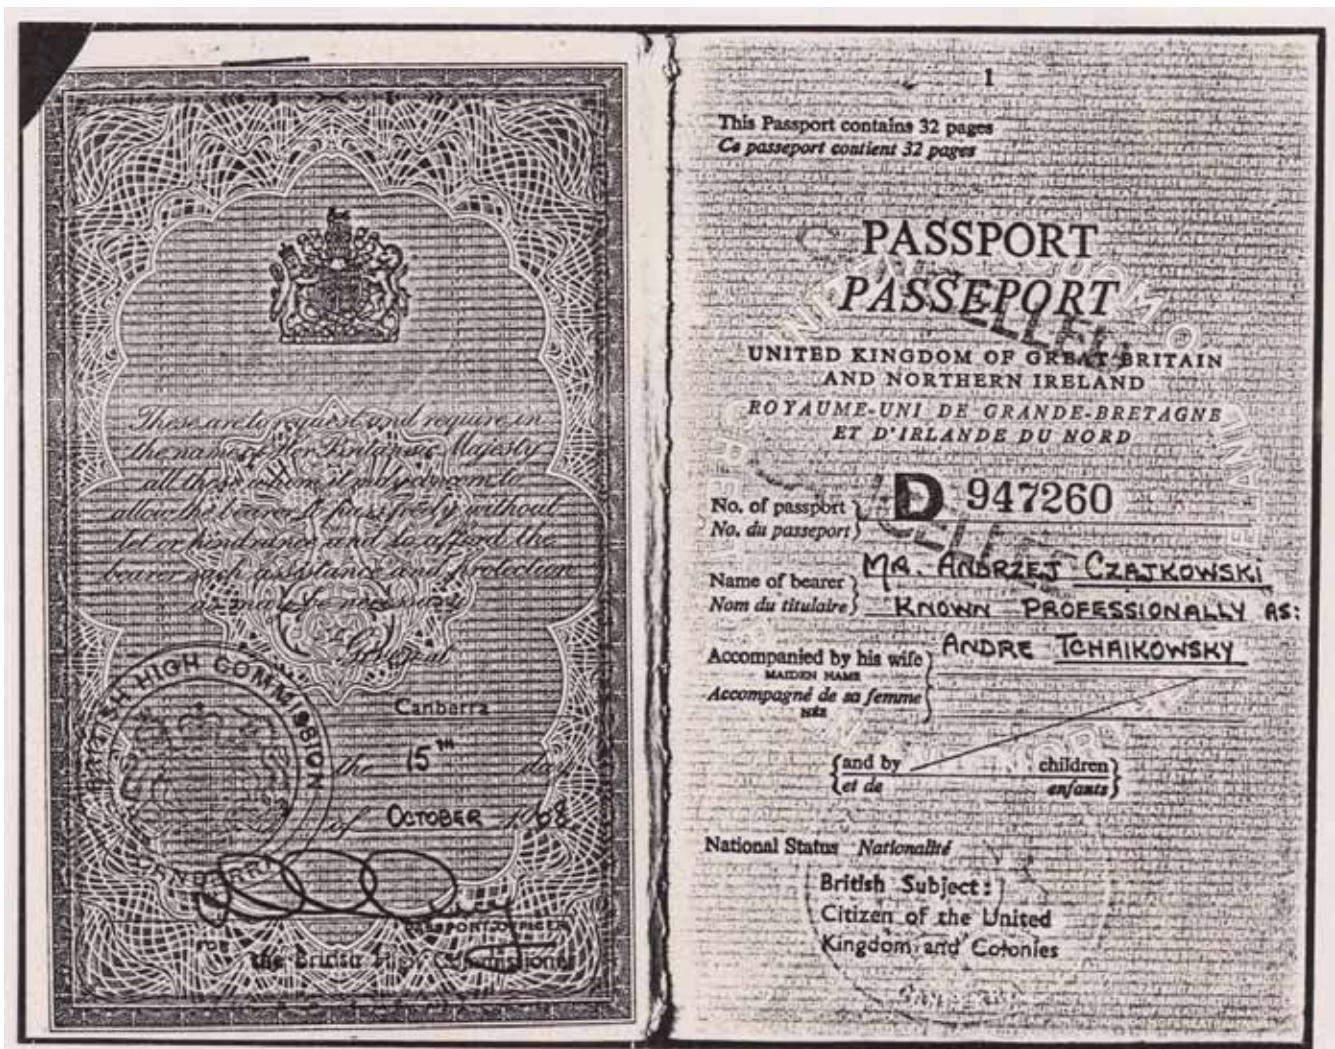 These are to request and require in
the name of Her Britannic Majesty
all those whom it may concern to
allow the bearer to pass freely without
let or hindrance and to afford the
bearer such assistance and protection
as may be necessary.
Given at
Canberra
the 15TH day
of OCTOBER 1968
BRITISH HIGH COMMISSION
CANBERRA
PASSPORT OFFICER
FOR the British High Commissioner
1
This Passport contains 32 pages
Ce passeport contient 32 pages
PASSPORT
PASSEPORT
CANCELLED
UNITED KINGDOM OF GREAT BRITAIN
AND NORTHERN IRELAND
ROYAUME-UNI DE GRANDE-BRETAGNE
ET D'IRLANDE DU NORD
No. of passport D 947260
No. du passeport
CANCELLED
Name of bearer MR. ANDRZEJ CZAJKOWSKI
Nom du titulaire KNOWN PROFESSIONALLY AS:
Accompanied by his wife ANDRE TCHAIKOWSKY
MAIDEN NAME
Accompagné de sa femme
NÉE
and by children
et de enfants
National Status Nationalité
British Subject:
Citizen of the United
Kingdom and Colonies